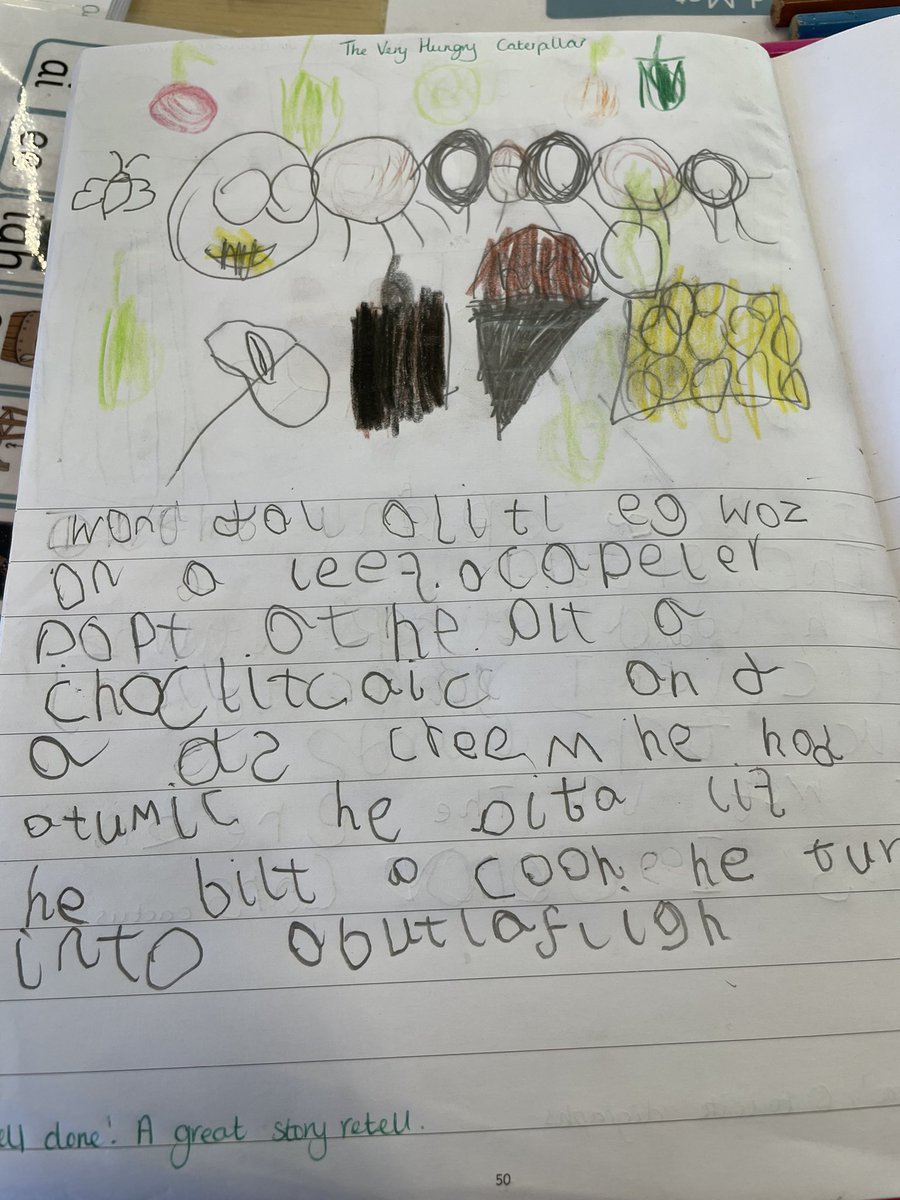 The Very Hungry Caterpillar
ai
ee
igh
wond day a litl eg woz
on a leef. a capeler
popt. at he. oit a
choclitcaic on d
a ais creem he had
atumic he oita lif
he bilt a coon. he tur
into abutlafligh
ell done! A great story retell.
50